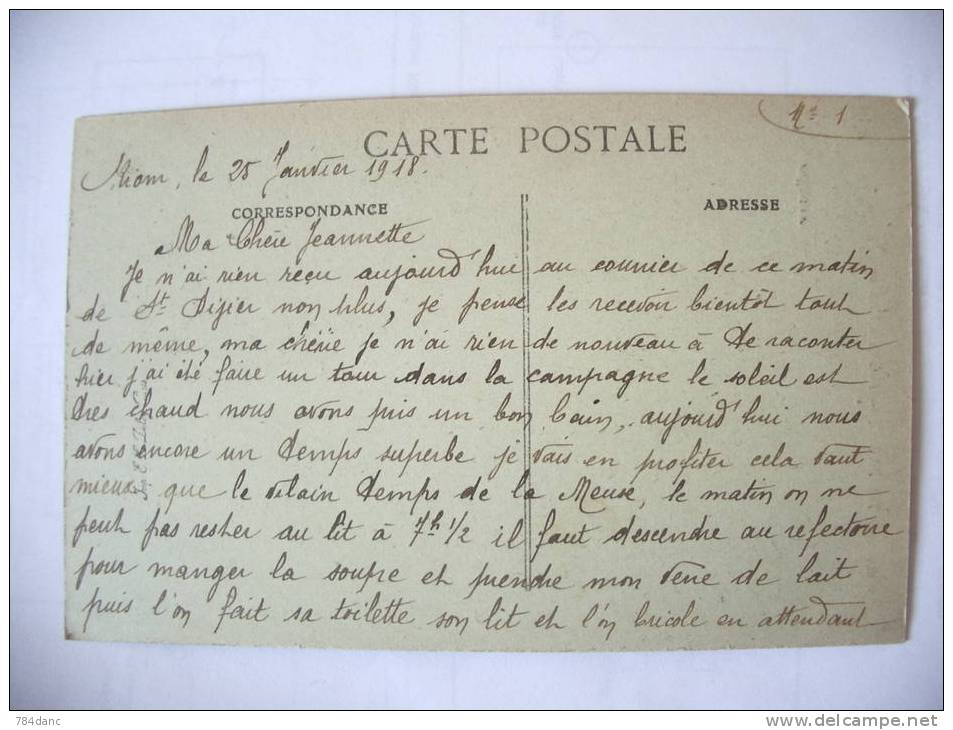 Nº 1
CARTE POSTALE
Riom, le 25 Janvier 1918.
CORRESPONDANCE
ADRESSE
Ma Chère Jeannette
Je n'ai rien reçu aujourd'hui au courrier de ce matin
de St Dizier non plus, je pense les recevoir bientôt tout
de même, ma chérie je n'ai rien de nouveau à te raconter
hier j'ai été faire un tour dans la campagne le soleil est
très chaud nous avons pris un bon bain, aujourd'hui nous
avons encore un temps superbe je vais en profiter cela vaut
mieux que le vilain temps de la Meuse, le matin on ne
peut pas rester au lit à 7h 1/2 il faut descendre au refectoire
pour manger la soupe et prendre mon verre de lait
puis l'on fait sa toilette son lit et l'on bricole en attendant
784danc
www.delcampe.net